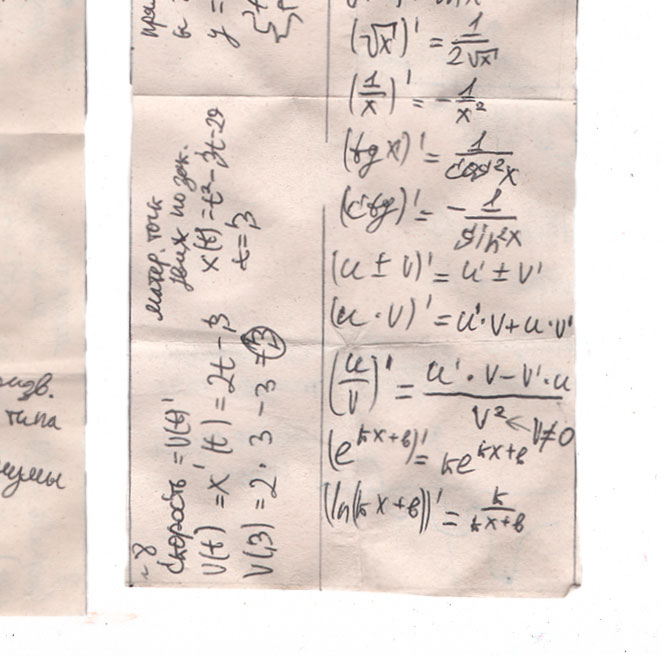 (√x)' = 1/(2√x)
(1/x)' = -1/x²
(tg x)' = 1/cos²x
(ctg)' = -1/sin²x
(u ± v)' = u' ± v'
(u · v)' = u'·v + u·v'
(u/v)' = (u'·v - v'·u)/v² ← v≠0
(e^(kx+в))' = ke^(kx+в)
(ln(kx+в))' = k/(kx+в)
матер. точк
движ по зак.
x(t) = t² - 3t - 29
t = 3
~8
Скорость = V(t)'
V(t) = x'(t) = 2t - 3
V(3) = 2·3 - 3 = 3
y =
типа